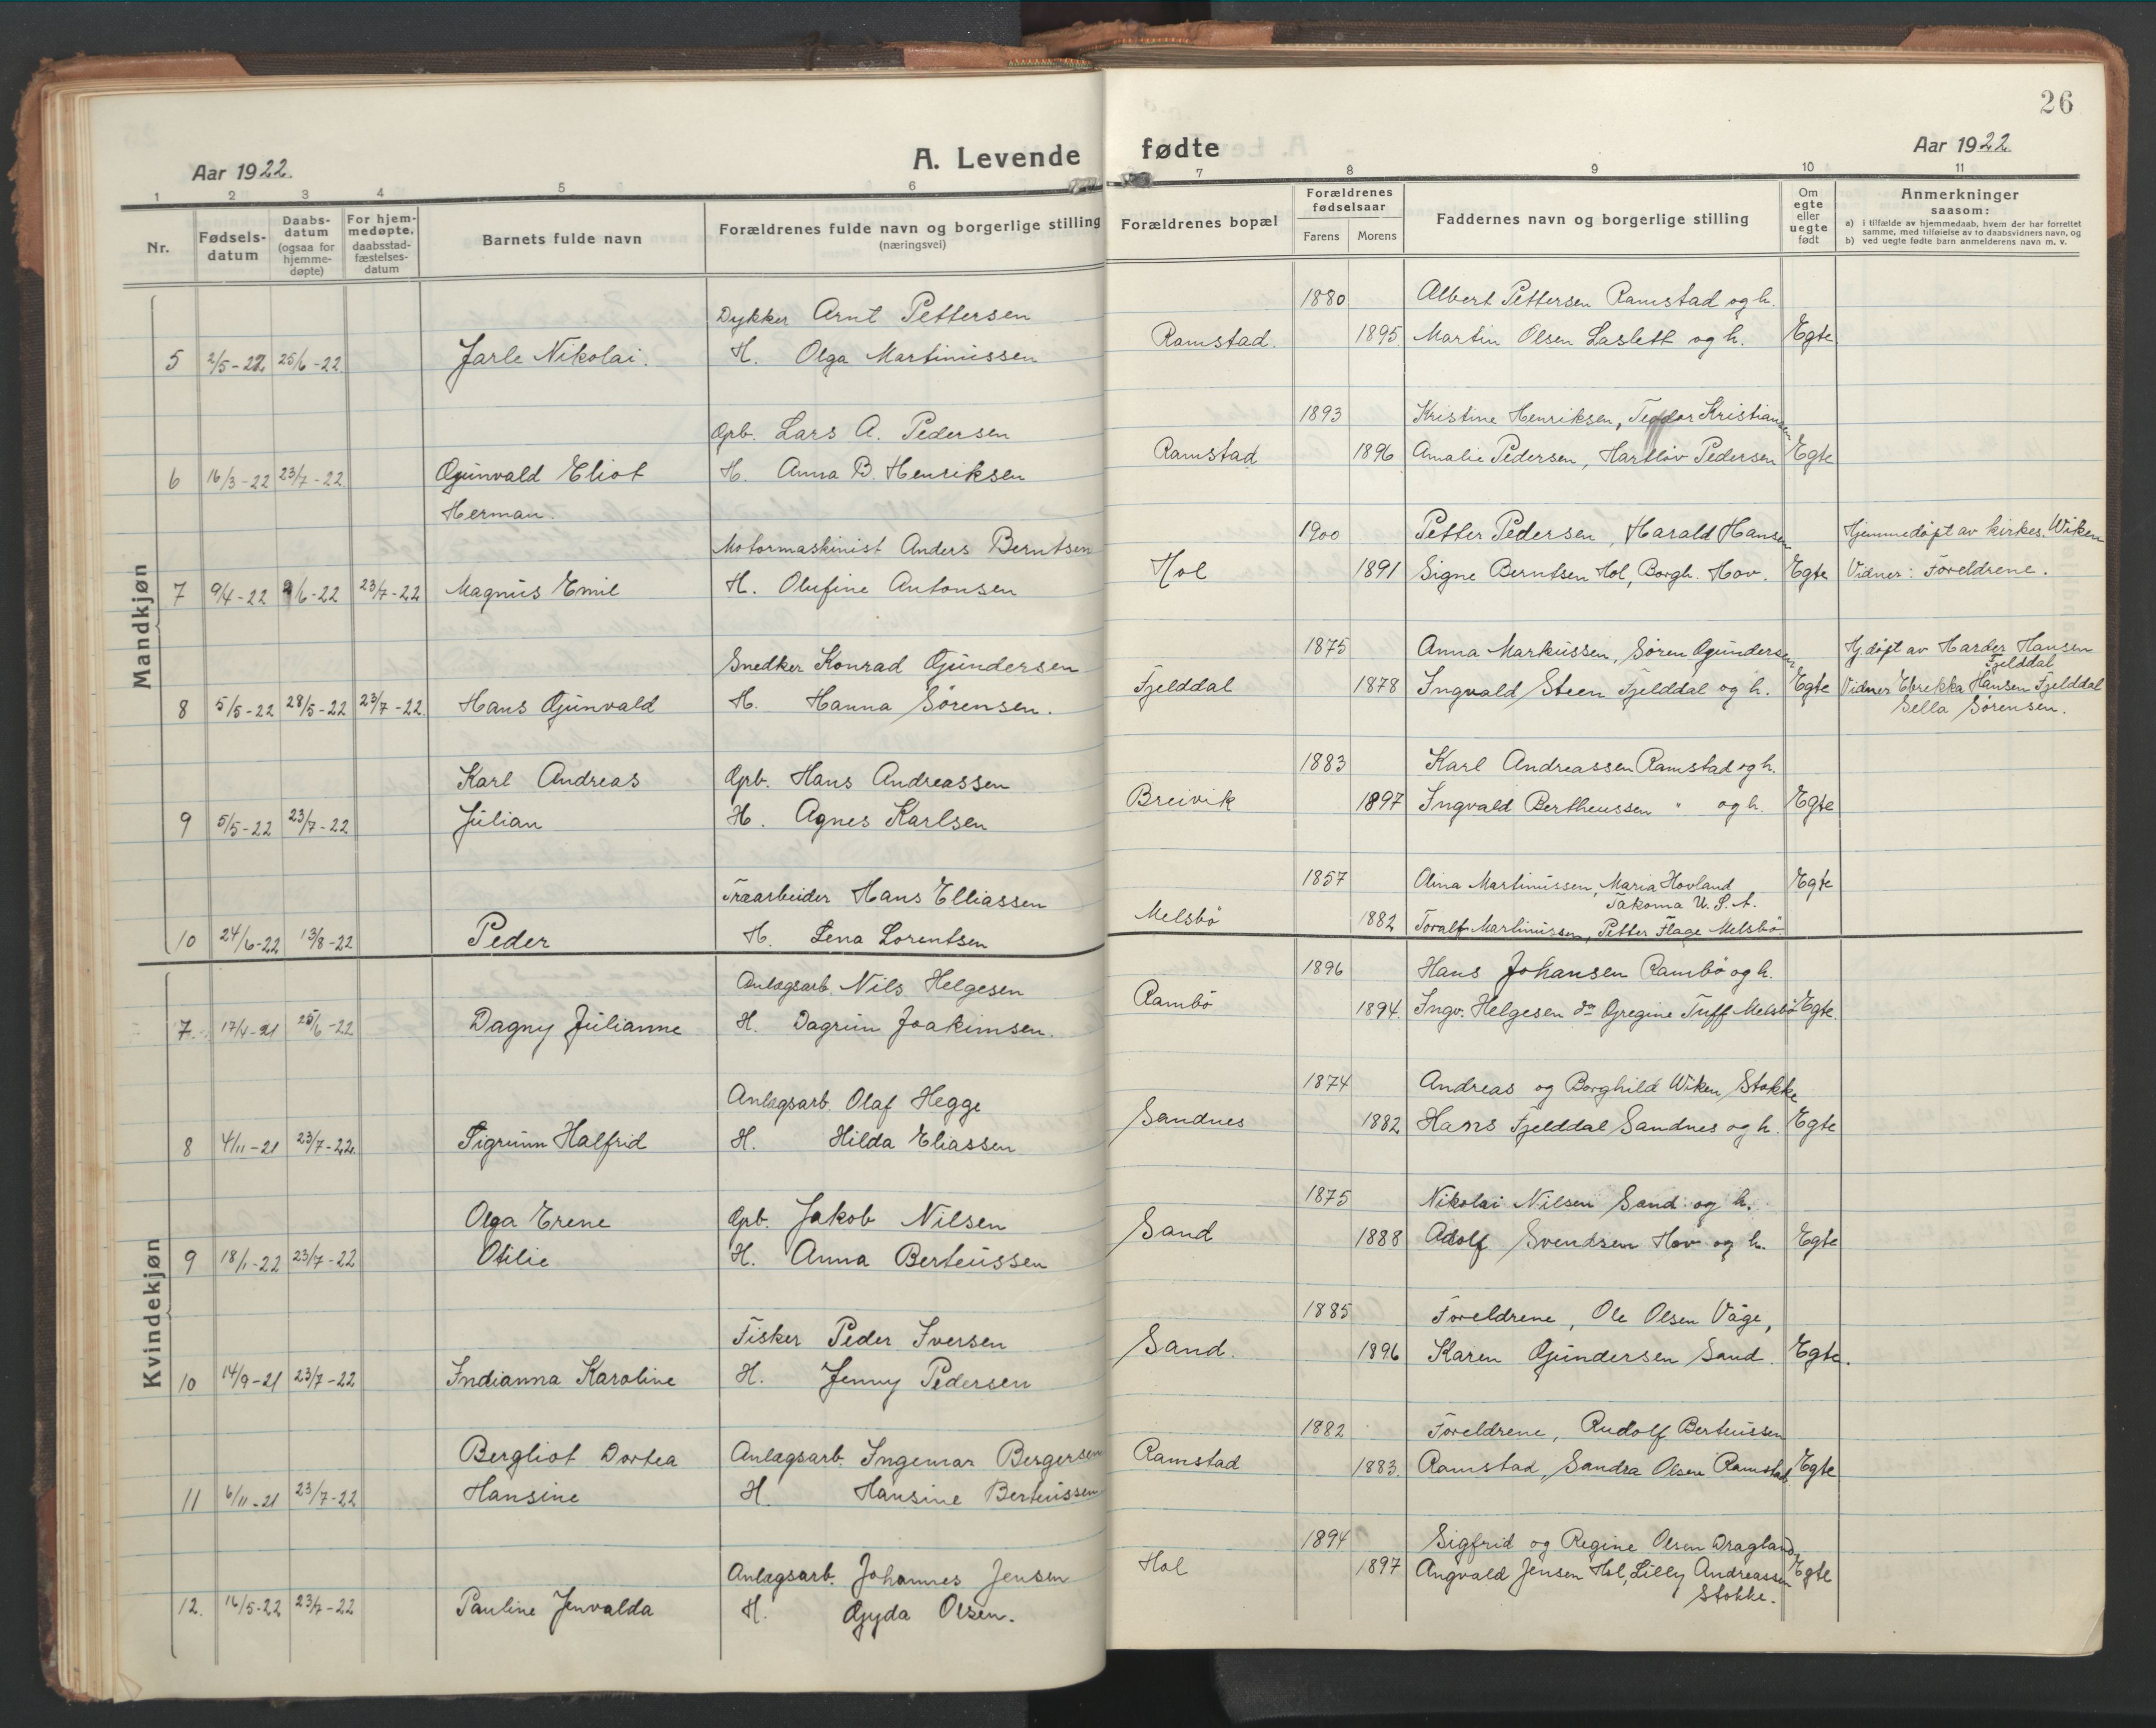 26
Aar 1922.
A. Levende fødte
Aar 1922.
1 2 3 4 5 6 7 8 9 10 11
Nr.
Fødsels-
datum
Daabs-
datum
(ogsaa for
hjemme-
døpte)
For hjem-
medøpte,
daabsstad-
fæstelses-
datum
Barnets fulde navn
Forældrenes fulde navn og borgerlige stilling
(næringsvei)
Forældrenes bopæl
Forældrenes
fødselsaar
Farens Morens
Faddernes navn og borgerlige stilling
Om
egte
eller
uegte
født
Anmerkninger
saasom:
a) i tilfælde av hjemmedaab, hvem der har forrettet
samme, med tilføielse av to daabsvidners navn, og
b) ved uegte fødte barn anmelderens navn m. v.
Mandkjøn
Dykker Arnt Pettersen 1880 Albert Pettersen Ramstad og h.
5 2/5-22 25/6-22 Jarle Nikolai. H. Olga Martinussen Ramstad. 1895 Martin Olsen Laslett og h. Egte
Gpb. Lars A. Pedersen 1893 Kristine Henriksen, Teodor Kristiansen
6 16/3-22 23/7-22 Gunvald Eliot H. Anna B. Henriksen Ramstad 1896 Amalie Pedersen, Hartløv Pedersen Egte
Herman.
Motormaskinist Anders Berntsen 1900 Petter Pedersen, Harald Hansen Hjemmedøpt av kirkes. Wiken
7 9/4-22 9/6-22 23/7-22 Magnus Emil H. Olufine Antonsen Hol 1891 Signe Berntsen Hol, Borgh. Hov. Egte Vidner: Foreldrene.
Snedker Konrad Gundersen 1875 Anna Markussen, Søren Gundersen Hjdøpt av Harder Hansen
Fjelddal
8 5/5-22 28/5-22 23/7-22. Hans Gunvald H. Hanna Sørensen. Fjelddal 1878 Ingvald Steen Fjelddal og h. Egte Vidner Ebrekka Hansen Fjelddal
Sella Sørensen.
Karl Andreas Gpb. Hans Andreassen 1883 Karl Andreassen Ramstad og h.
9 5/5-22 23/7-22 Julian H. Agnes Karlsen Breivik 1897 Ingvald Bertheussen " og h. Egte
Træarbeider Hans Elliassen 1857 Olina Martinussen, Maria Hovland Egte
Takoma U. S. A.
10 24/6-22 13/8-22 Peder H. Lena Lorentsen Melsbø 1882 Toralf Martinussen, Petter Flage Melsbø.
Kvindekjøn
Anlægsarb. Nils Helgesen 1896 Hans Johansen Rambø og h.
7. 17/4-21 25/6-22 Dagny Julianne H. Dagrun Joakimsen. Rambø 1894. Ingv. Helgesen do Gregine Tuff Melsbø Egte.
Anlægsarb. Olaf Hegge 1874 Andreas og Borghild Wiken Stokke
8 4/11-21 23/7-22. Sigrunn Halfrid H. Hilda Eliassen Sandnes 1882 Hans Fjelddal Sandnes og h. Egte
Olga Erene Gpb. Jakob Nilsen 1875 Nikolai Nilsen Sand og h.
9 18/1-22 23/7-22 Otilie H. Anna Berteussen Sand 1888 Adolf Svendsen Hov og h. Egte
Fisker Peder Iversen 1885 Foreldrene, Ole Olsen Våge,
10 14/9-21 23/7-22 Indianna Karoline H. Jenny Pedersen Sand. 1896 Karen Gundersen Sand. Egte.
Bergliot Dortea Anlægsarb. Ingemar Bergersen 1882 Foreldrene, Rudolf Berteussen
11 6/11-21 23/7-22 Hansine H. Hansine Berteussen Ramstad 1883. Ramstad, Sandra Olsen Ramstad Egte
Anlægsarb. Johannes Jensen 1894 Sigfrid og Regine Olsen Dragland,
12. 16/5-22 23/7-22 Pauline Jenvalda H. Gyda Olsen. Hol 1897 Angvald Jensen Hol, Lilly Andreassen Egte
Stokke.